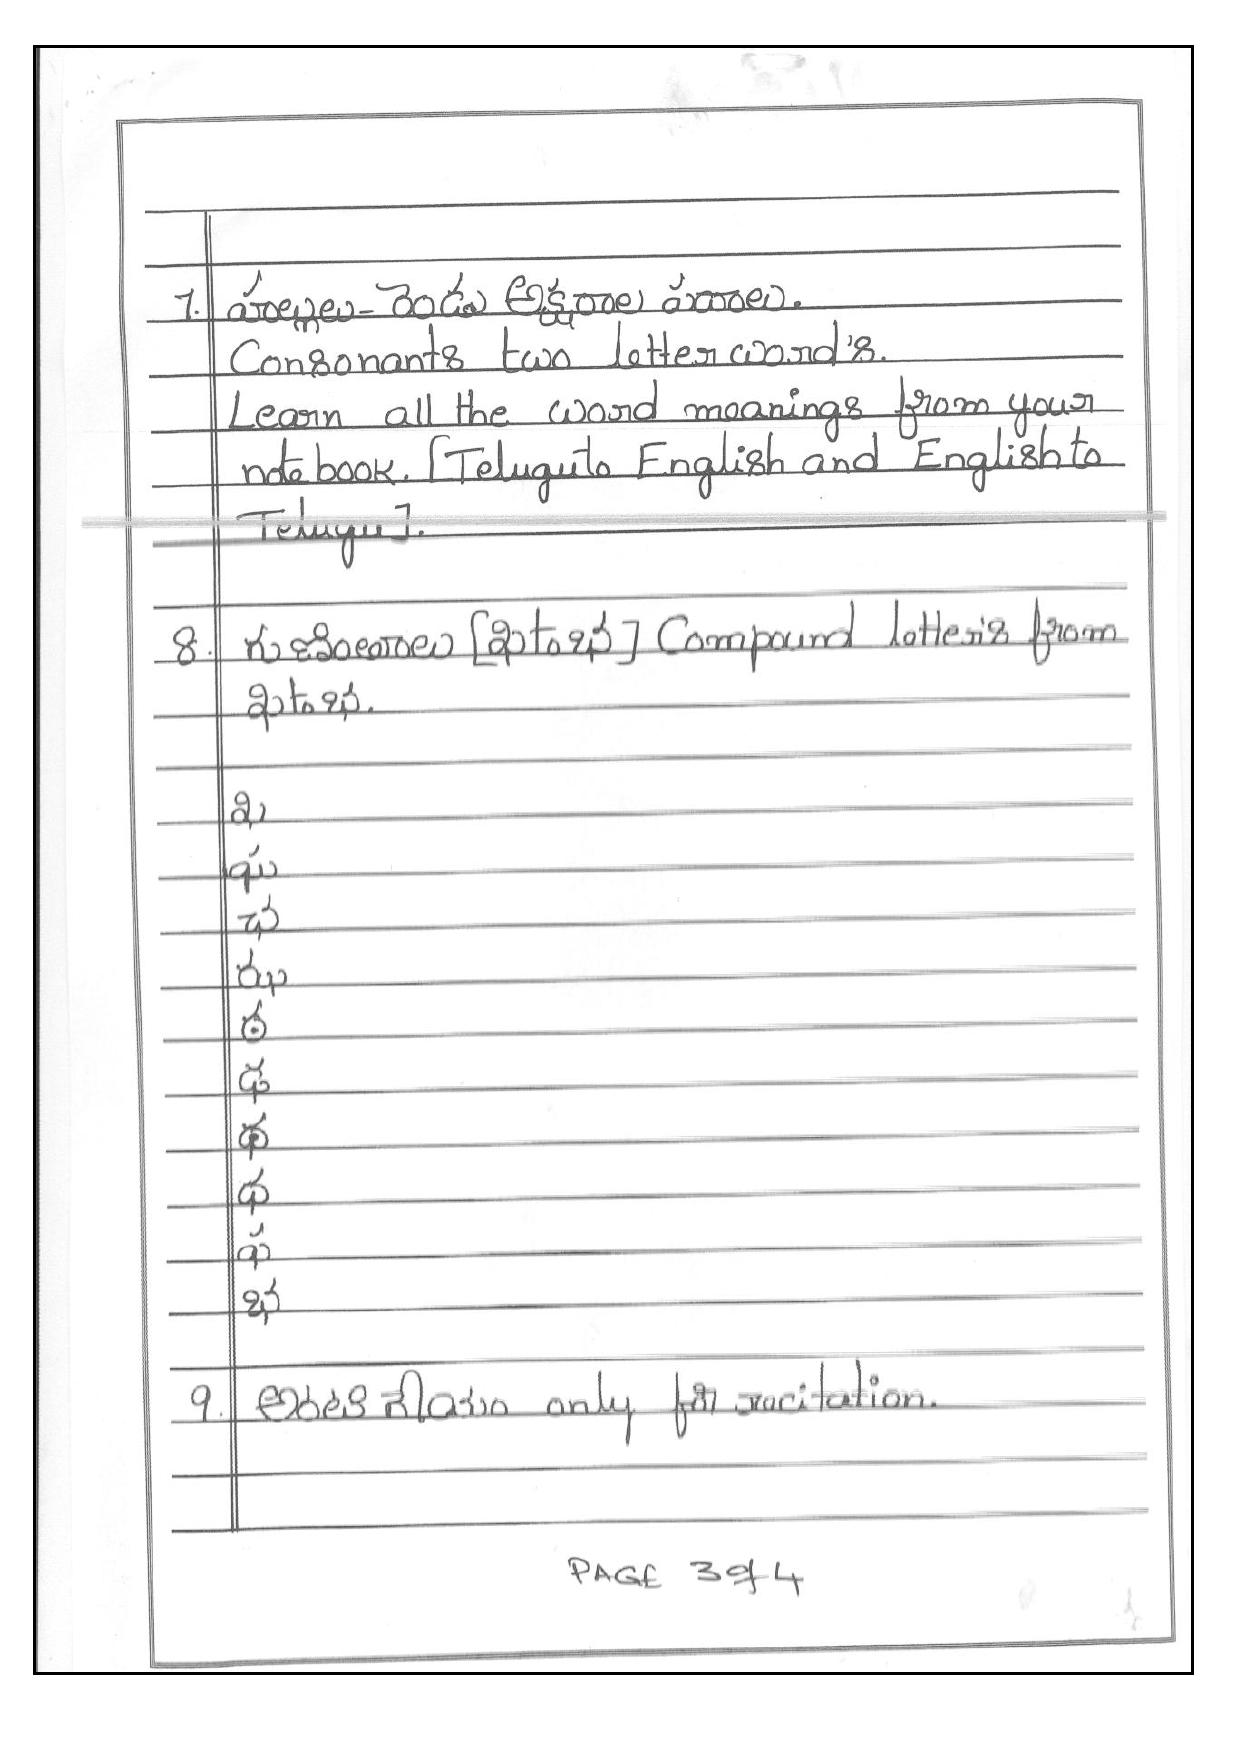 7. హల్లులు - రెండు అక్షరాల పదాలు.
Consonants two letter word's.
Learn all the word meanings from your
notebook. [Telugu to English and English to
Telugu].
8. గుణింతాలు [ఖ to భ] Compound letter's from
ఖ to భ.
ఖ
ఘ
ఛ
ఝ
ఠ
ఢ
థ
ధ
ఫ
భ
9. only for recitation.
PAGE 3 of 4